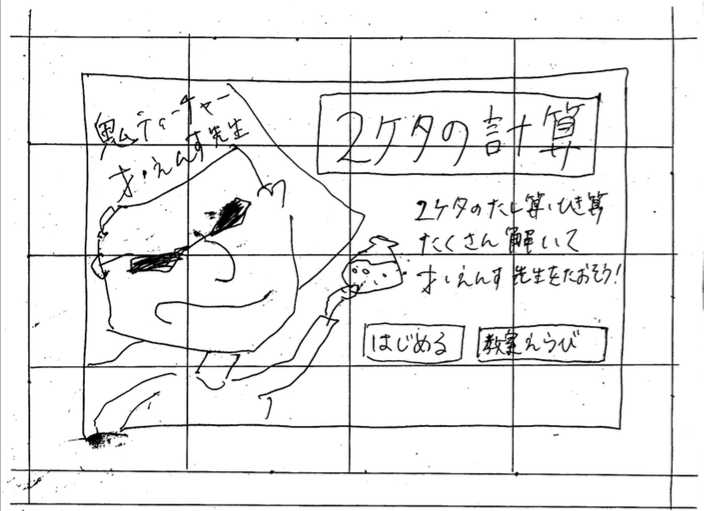 鬼ティーチャー
さ・えんす先生
2ケタの計算
2ケタのたし算・ひき算
たくさん解いて
さ・えんす先生をたおそう!
はじめる
教室えらび